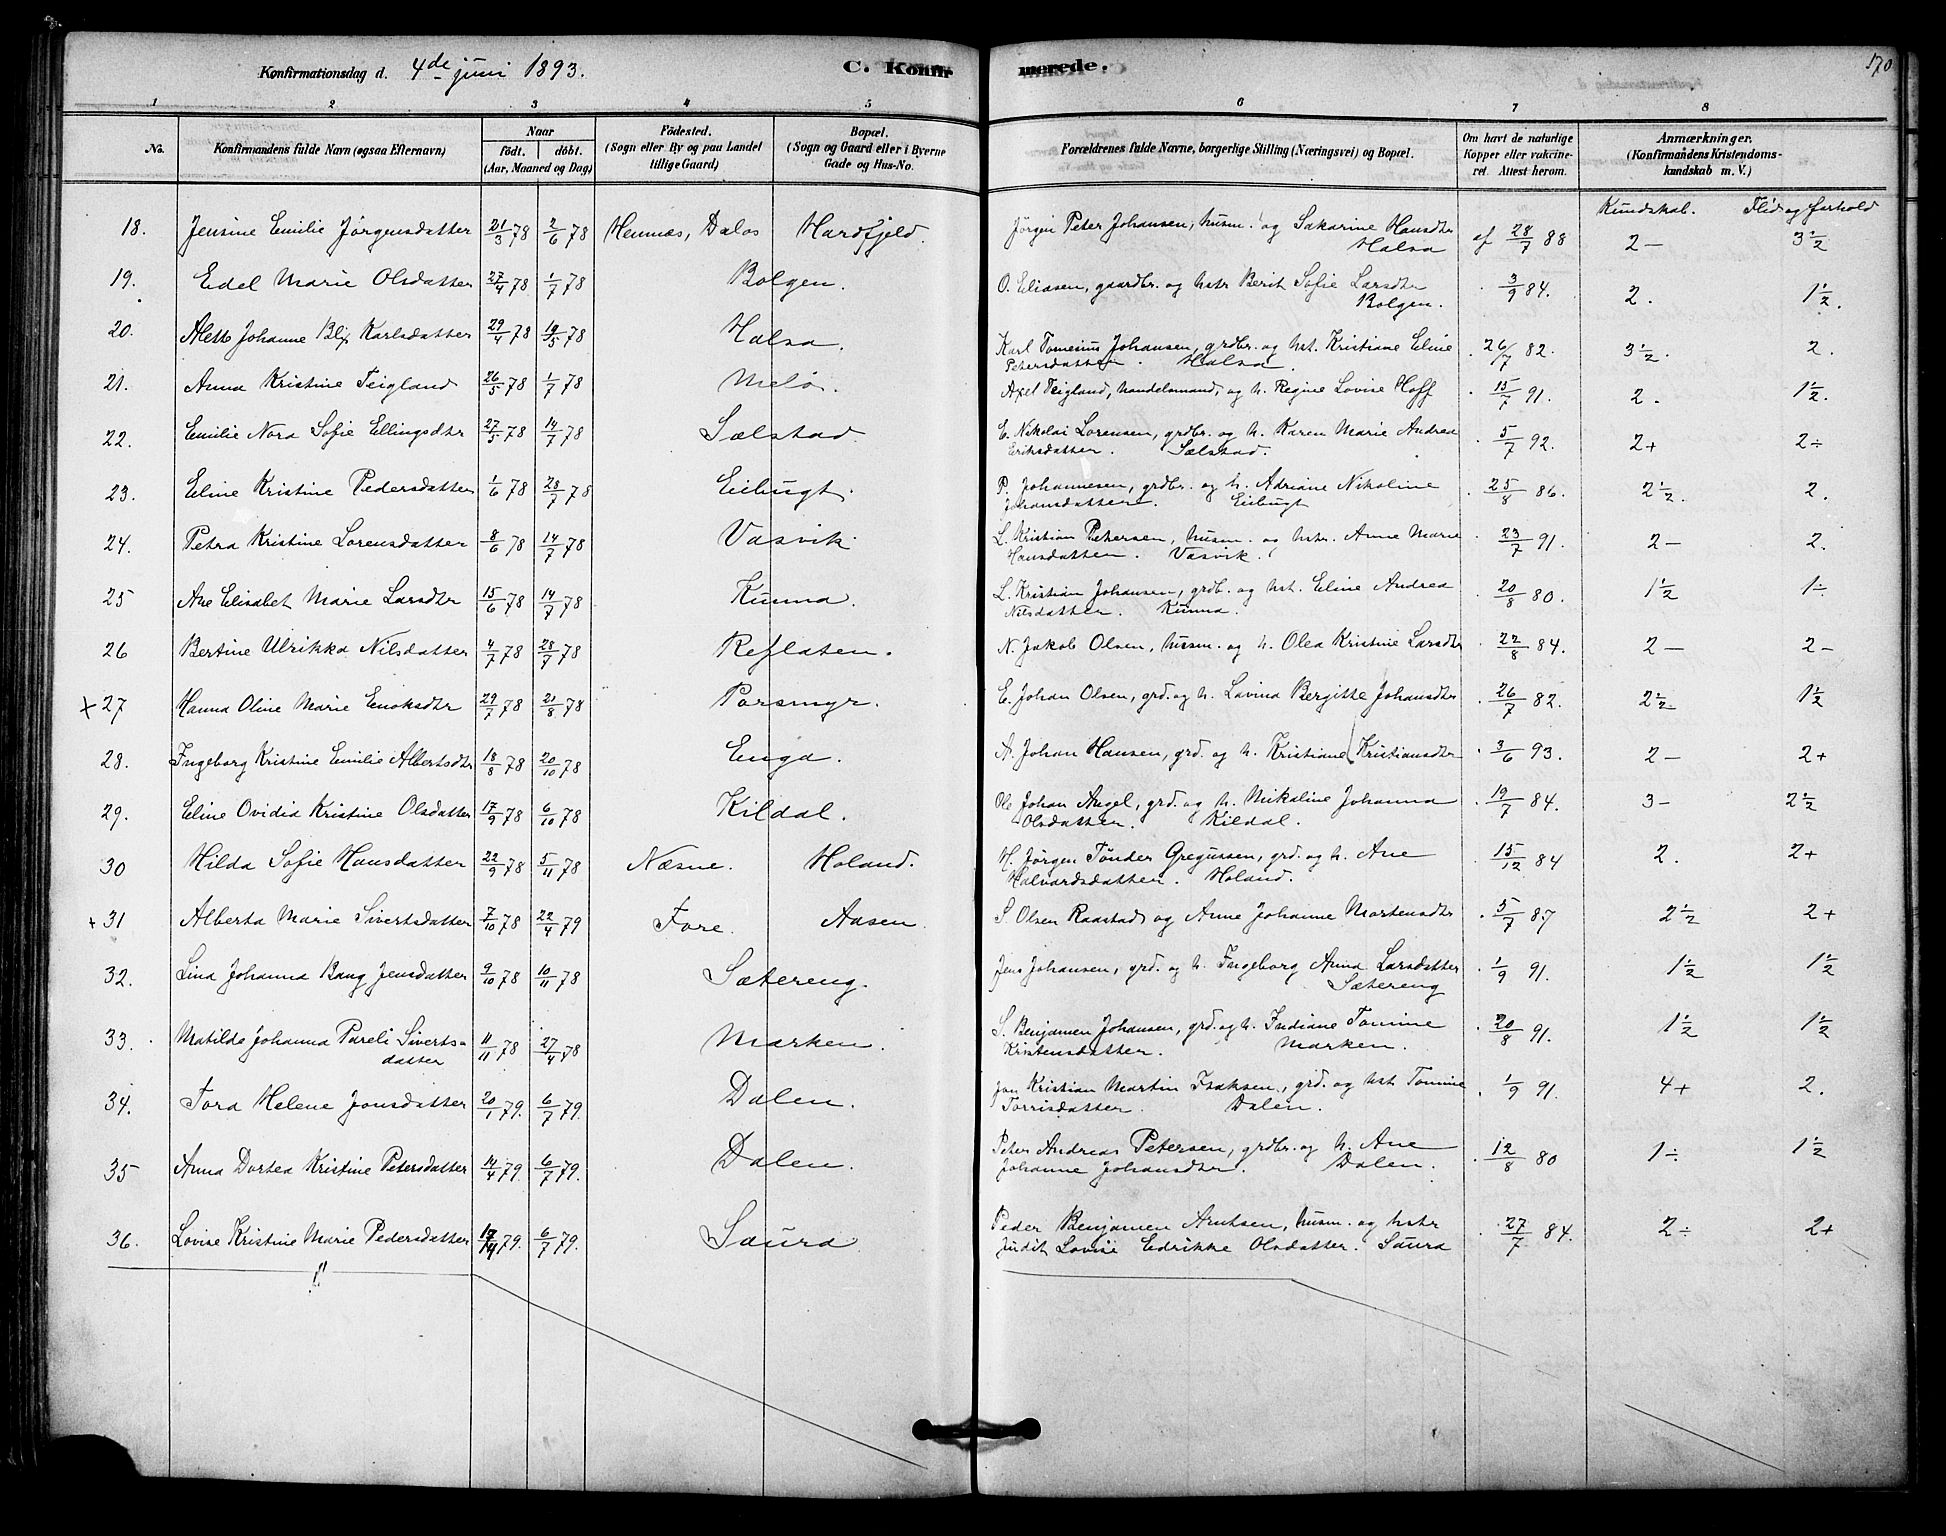 Konfirmationsdag d. 4de juni 1893. C. Konfirmerede. 170
1 2 3 4 5 6 7 8
No. Konfirmandens fulde Navn (ogsaa Efternavn) Naar födt. döbt. (Aar, Maaned og Dag) Födested. (Sogn eller By og paa Landet tillige Gaard) Bopæl. (Sogn og Gaard eller i Byerne Gade og Hus-No. Forældrenes fulde Navne, borgerlige Stilling (Næringsvei) og Bopæl. Om havt de naturlige Kopper eller vakcineret. Attest herom. Anmærkninger. (Konfirmandens Kristendomskundskab m. V.)
Kundskab. Flid og forhold
18. Jensine Emilie Jørgensdatter 21/3 78 2/6 78 Hemnæs, Dalos Hardfjeld. Jörgen Peter Johansen, husm. og Sakarine Hansdtr Halsa af 28/7 88 2 – 3 1/2
19. Edel Marie Olsdatter 27/4 78 1/7 78 Bolgen. O. Eliasen, gaardbr. og hstr Berit Sofie Larsdtr Bolgen. 3/9 84. 2. 1 1/2.
20. Alette Johanne Blix Karlsdatter 29/4 78 19/5 78 Halsa. Karl Tomesius Johansen, grdbr. og hst. Kristiane Eline Petersdatter. Halsa. 26/7 82. 3 1/2. 2.
21. Anna Kristine Teigland 26/5 78 1/7 78 Melö. Axel Teigland, handelsmand, og h. Regine Lovise Hoff 15/7 91. 2. 1 1/2.
22. Emilie Nora Sofie Ellingsdtr 27/5 78 14/7 78 Sælstad. E. Nikolai Lorensen, grdbr. og h. Karen Marie Andrea Eriksdatter. Sælstad. 5/7 92. 2+ 2÷
23. Eline Kristine Pedersdatter 1/6 78 28/7 78 Eibugt. P. Johannesen, grdbr. og h. Adriane Nikoline Johansdatter. Eibugt 25/8 86. 2 1/2. 2.
24. Petra Kristine Lorensdatter 8/6 78 14/7 78 Vasvik L. Kristian Petersen, husm. og hstr. Anne Marie Hansdatter. Vasvik. 23/7 91. 2 – 2.
25 Ane Elisabet Marie Larsdtr 15/6 78 14/7 78 Kunna. L. Kristian Johansen, grdb. og hst. Eline Andrea Nilsdatter. Kunna. 20/8 80. 1 1/2 1÷
26 Bertine Ulrikka Nilsdatter 4/7 78 28/7 78 Reflaten. N. Jakob Olsen, husm. og h. Olea Kristine Larsdtr 22/8 84. 2 – 2 –
x 27 Hanna Oline Marie Enoksdtr 29/7 78 21/8 78 Porsmyr. E. Johan Olsen, grd. og h. Lavina Bergitte Johansdtr 26/7 82. 2 1/2 1 1/2
28. Ingeborg Kristine Emilie Albertsdtr 18/8 78 20/10 78 Enga. A. Johan Hansen, grd. og h. Kristiane Kristiansdtr 3/6 93. 2 – 2+
29. Eline Ovidia Kristine Olsdatter 17/9 78 6/10 78 Kildal. Ole Johan Angel, grd. og h. Nikoline Johanna Olsdatter. Kildal. 19/7 84. 3 – 2 1/2
30 Hilda Sofie Hansdatter 22/9 78 5/11 78 Næsne. Holand. H. Jørgen Tönder Gregussen, grd. og h. Ane Halvardsdatter. Holand. 15/12 84 2. 2+
+ 31 Alberta Marie Sivertsdatter 7/10 78 22/4 79 Fore. Aasen. S Olsen Raastad og Anne Johanne Mortensdtr 5/7 87 2 1/2 2+
32. Lina Johanna Bang Jensdatter 9/10 78 10/11 78 Sætereng. Jens Johansen, grd. og h. Ingeborg Anna Larsdatter Sætereng 1/9 91. 1 1/2 1 1/2
33. Matilde Johanna Pareli Sivertsdatter 11/11 78 27/4 78 Marken. S. Benjamen Johansen, grd. og h. Indiane Tomine Kristensdatter. Marken. 20/8 91. 1 1/2 1 1/2
34. Tora Helene Jonsdatter 20/1 79. 6/7 79. Dalen. Jon Kristian Martin Isaksen, grd. og hst. Tomine Torrisdatter. Dalen. 1/9 91. 4+ 2.
35 Anna Dortea Kristine Petersdatter 14/4 79. 6/7 79. Dalen. Peter Andreas Petersen, grdbr. og h. Ane Johanne Johansdtr. Dalen. 12/8 80 1÷ 1 1/2
36. Lovise Kristine Marie Pedersdatter 79. 6/7 79. Saura Peder Benjamen Arntsen, husm. og hstr Judit Lovise Edrikke Olsdatter. Saura 27/7 84. 2÷ 2+